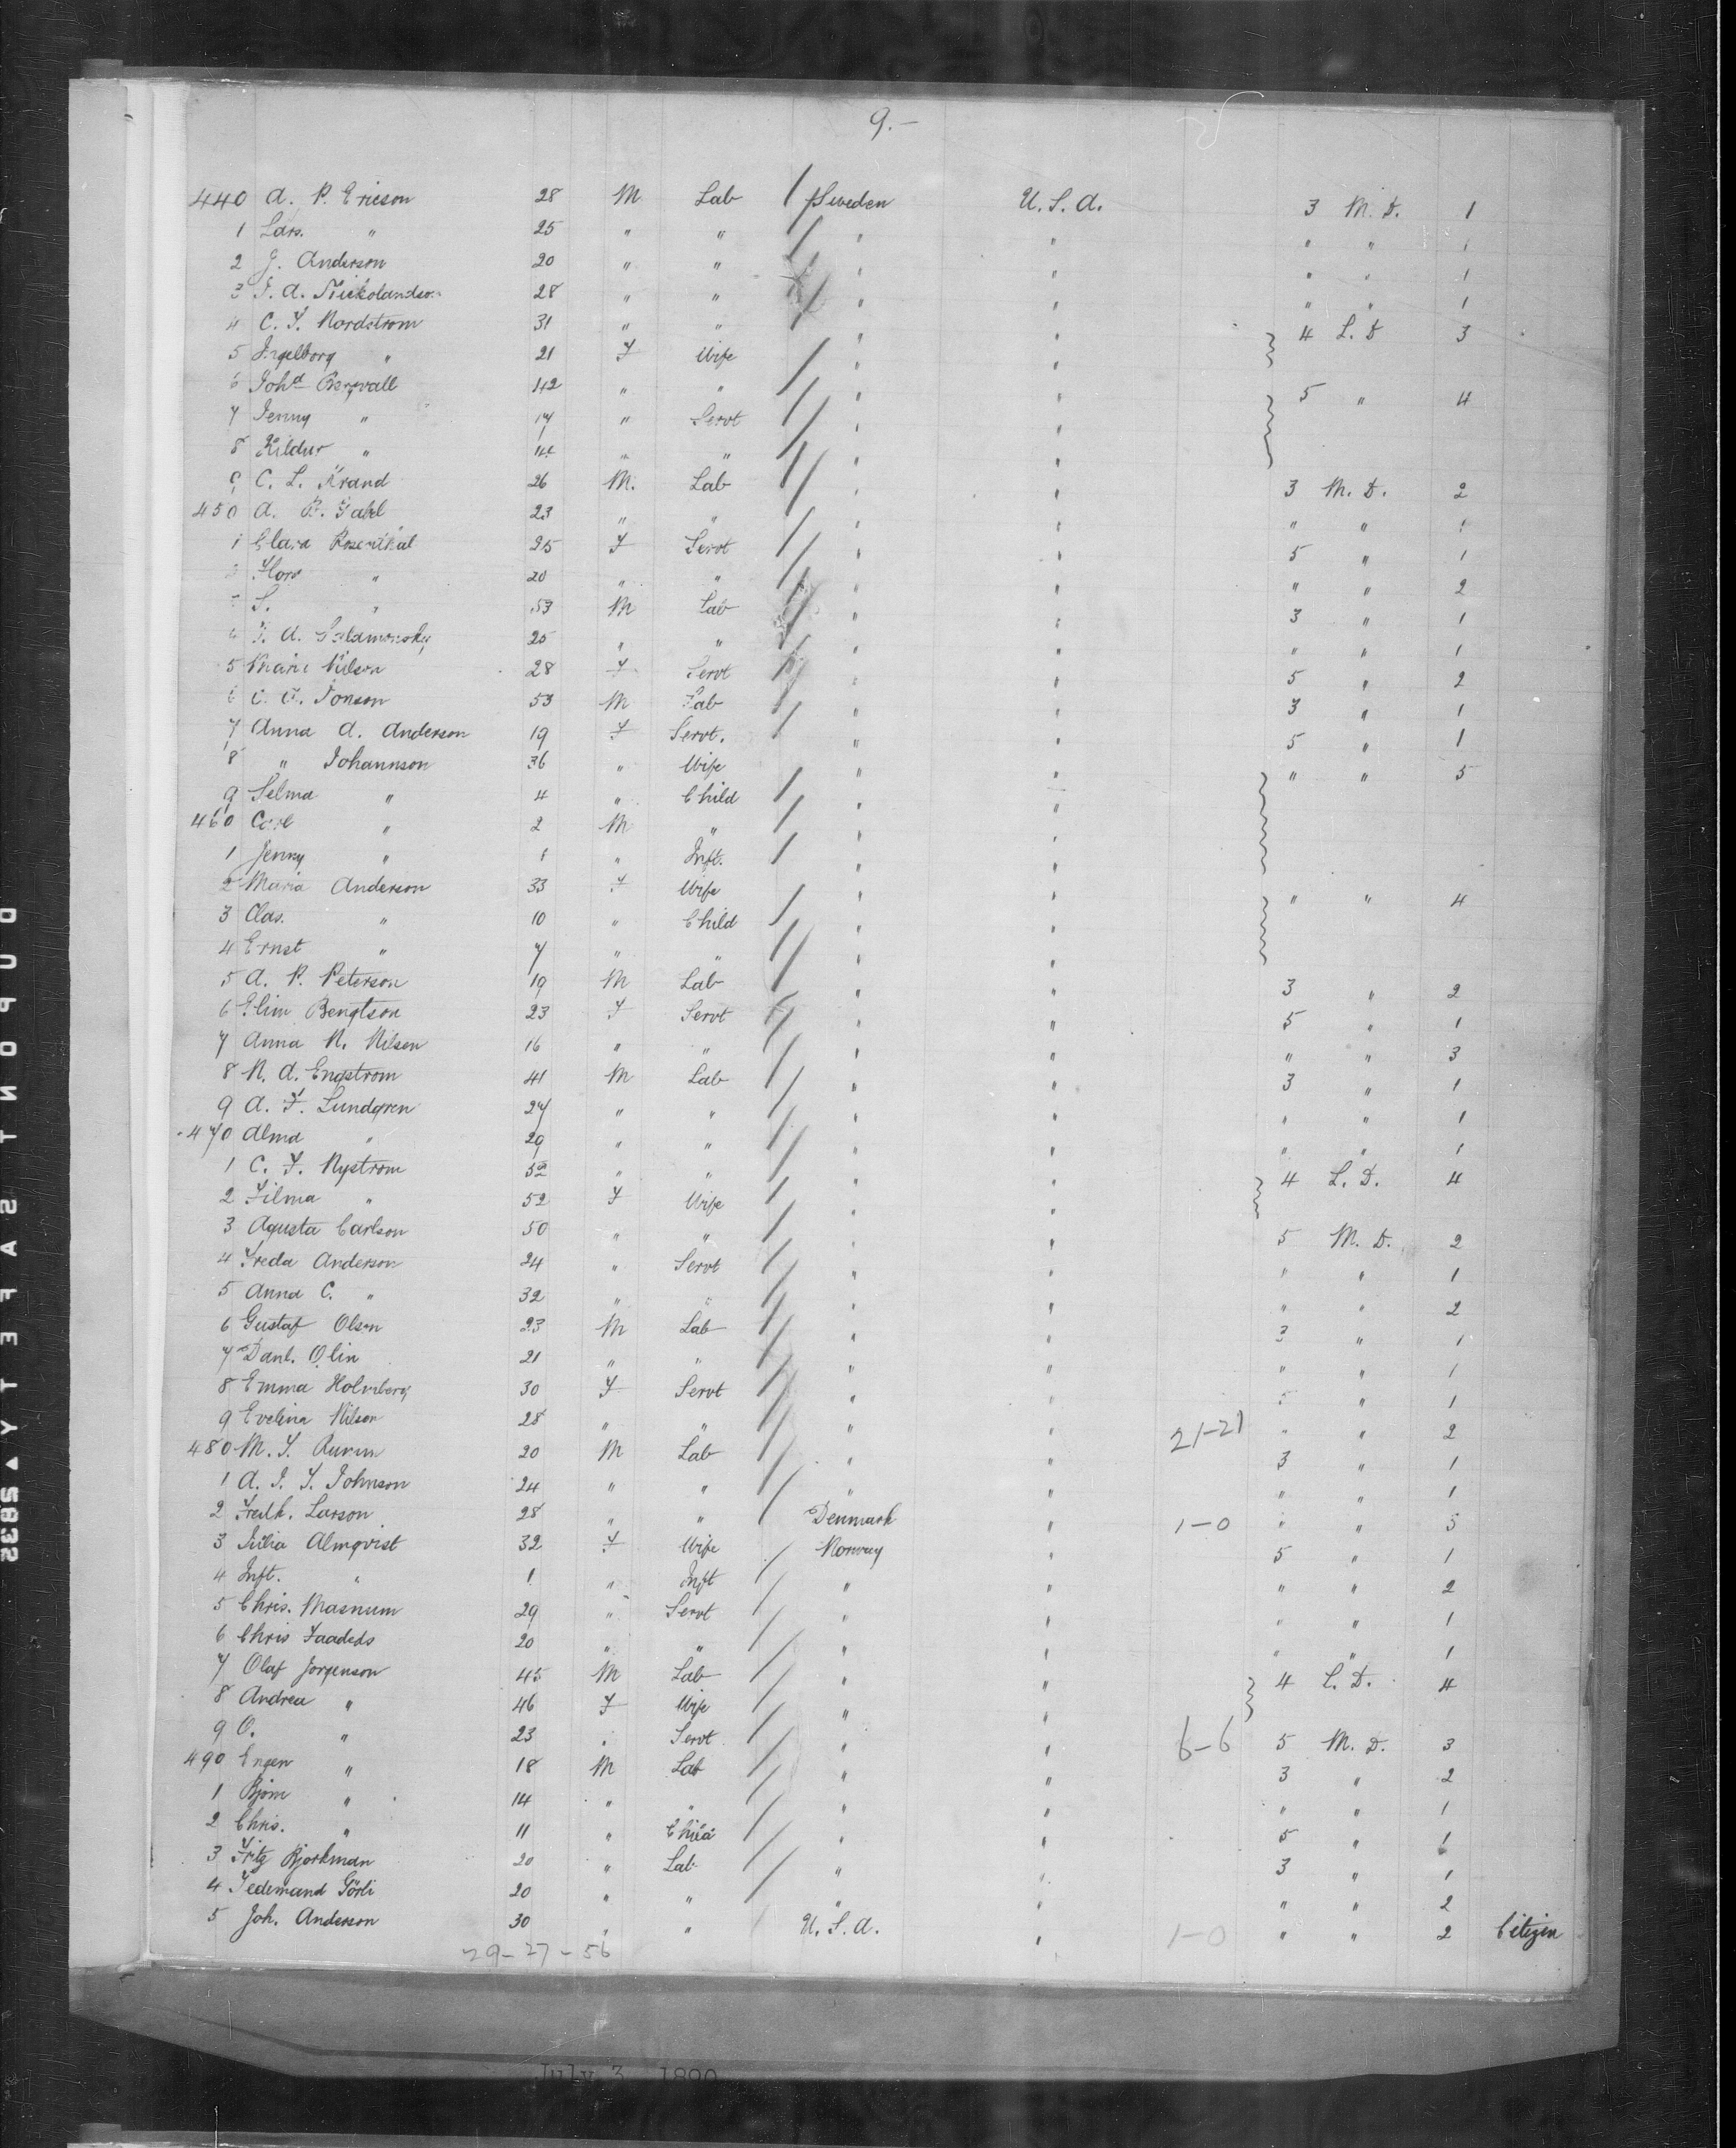 9.-
440 A. P. Ericson 28 M Lab Sweden U.S.A. 3 M.D. 1
1 Lars. " 25 " " " " " " 1
2 J. Anderson 20 " " " " " " 1
3 28 " " " " " " 1
4 C. F. Nordstrom 31 " " " " 4 L.D 3
5 Ingelborg " 21 F Wife " "
6 Joha Bergvall 42 " " " " 5 " 4
7 Jenny " 17 " Servt " "
8 Hildur " 14 " " " "
9 C. L. 26 M. Lab " " 3 M.D. 2
450 A. 23 " " " " " " 1
1 Clara Rosenthal 25 F Servt " " 5 " 1
Flora " 20 " " " " " " 2
S. " 53 M Lab " " 3 " 1
4 A. Salamonsky 25 " " " " " " 1
5 Marie Nilson 28 F Servt " " 5 " 2
6 Jonson 53 M Lab " " 3 " 1
7 Anna A. Anderson 19 F Servt. " " 5 " 1
8 " Johannson 36 " Wife " " " " 5
9 Selma " 4 " Child " "
460 Carl " 2 M " " "
1 Jenny " 1 " Inft. " "
2 Maria Anderson 33 F Wife " " " " 4
3 Clas. " 10 " Child " "
4 Ernst " 7 " " " "
5 A. P. Peterson 19 M Lab " " 3 " 2
6 Elin Bengtson 23 F Servt " " 5 " 1
7 Anna N. Nilson 16 " " " " " " 3
8 N. A. Engstrom 41 M Lab " " 3 " 1
9 A. F. Lundgren 27 " " " " " " 1
470 Alma " 29 " " " " " " 1
1 C. F. Nystrom 52 " " " " 4 L.D. 4
2 Filma " 52 F Wife " "
3 Agusta Carlson 50 " " " " 5 M.D. 2
4 Freda Anderson 24 " Servt " " " " 1
5 Anna C. " 32 " " " " " " 2
6 Gustaf Olson 23 M Lab " " 3 " 1
7 Danl. Olin 21 " " " " " " 1
8 Emma Holmberg 30 F Servt " " 5 " 1
9 Evelina Nilson 28 " " " " 21-21 " " 2
480 M. 20 M Lab " " 3 " 1
1 A. J. F. Johnson 24 " " " " " " 1
2 Fredk. Larson 28 " " Denmark " 1-0 " " 5
3 Julia Almqvist 32 F Wife Norway " 5 " 1
4 Inft. " 1 " Inft " " " " 2
5 Chris. Masnum 29 " Servt " " " " 1
6 Chris 20 " " " " " " 1
7 Olaf Jorgenson 45 M Lab " " 4 L.D. 4
8 Andrea " 46 F Wife " "
9 O. " 23 " Servt " " 6-6 5 M.D. 3
490 " 18 M Lab " " 3 " 2
1 Bjorn " 14 " " " " " " 1
2 Chris. " 11 " Child " " 5 " 1
3 Fritz Bjorkman 20 " Lab " " 3 " 1
4 20 " " " " " " 2
5 Joh. Anderson 30 " " U.S.A. " 1-0 " " 2 Citizen
29-27-56
July 3, 1890
DUPONT SAFETY ▲ 5832